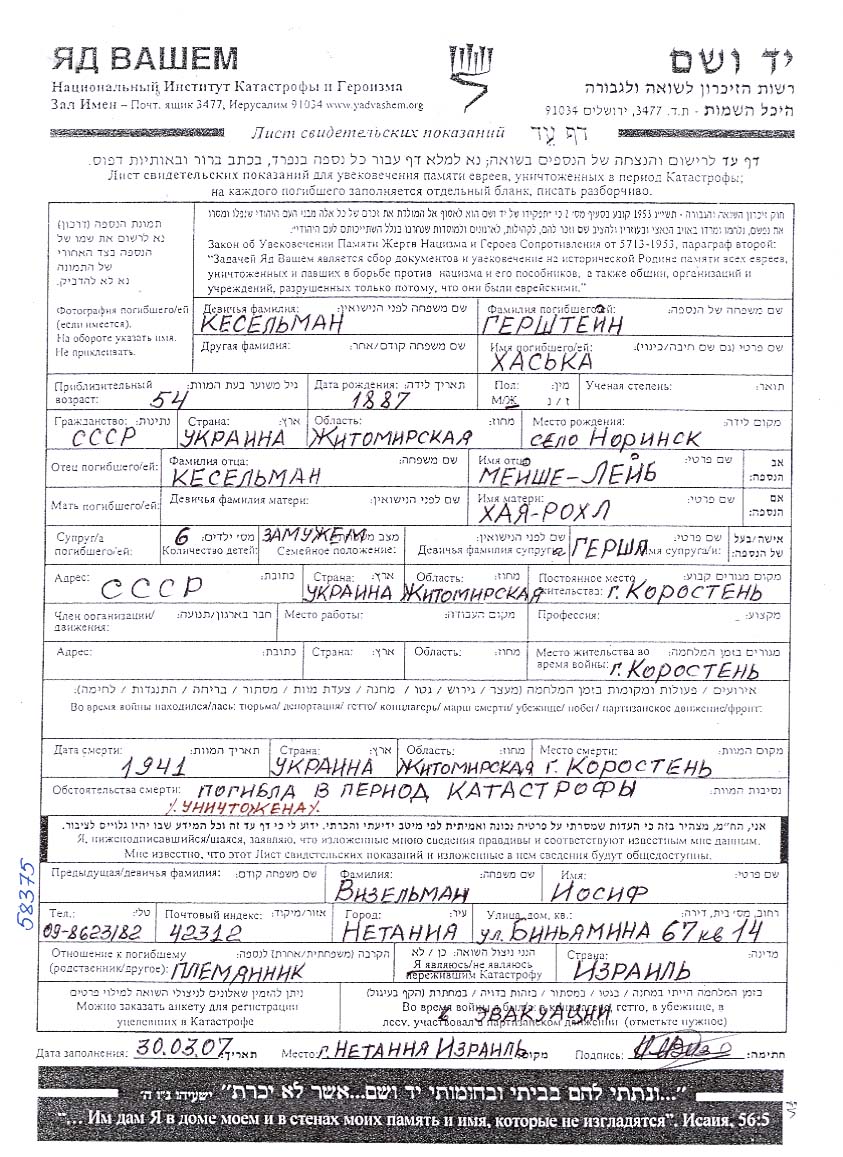 ЯД ВАШЕМ
יד ושם
Национальный Институт Катастрофы и Героизма
רשות הזיכרון לשואה ולגבורה
Зал Имен – Почт. ящик 3477, Иерусалим 91034 www.yadvashem.org
היכל השמות - ת.ד. 3477, ירושלים 91034
Лист свидетельских показаний דף עד
דף עד לרישום והנצחה של הנספים בשואה; נא למלא דף עבור כל נספה בנפרד, בכתב ברור ובאותיות דפוס.
Лист свидетельских показаний для увековечения памяти евреев, уничтоженных в период Катастрофы;
на каждого погибшего заполняется отдельный бланк, писать разборчиво.
תמונת הנספה (דרכון)
נא לרשום את שמו של
הנספה בצד האחורי
של התמונה
נא לא להדביק.
Фотография погибшего/ей
(если имеется).
На обороте указать имя.
Не приклеивать.
חוק זיכרון השואה והגבורה - תשי"ג 1953 קובע בסעיף מס' 2 כי "תפקידו של יד ושם הוא לאסוף אל המולדת את זכרם של כל אלה מבני העם היהודי שנפלו ומסרו
את נפשם, נלחמו ומרדו באויב הנאצי ובעוזריו ולהציב שם וזכר להם, לקהילות, לארגונים ולמוסדות שנחרבו בגלל השתייכותם לעם היהודי".
Закон об Увековечении Памяти Жертв Нацизма и Героев Сопротивления от 5713-1953, параграф второй:
"Задачей Яд Вашем является сбор документов и увековечение на исторической Родине памяти всех евреев,
уничтоженных и павших в борьбе против нацизма и его пособников, а также общин, организаций и
учреждений, разрушенных только потому, что они были еврейскими."
Девичья фамилия: שם משפחה לפני הנישואין: Фамилия погибшего/ей: שם משפחה של הנספה:
КЕСЕЛЬМАН ГЕРШТЕЙН
Другая фамилия: שם משפחה קודם/אחר: Имя погибшего/ей: שם פרטי (גם שם חיבה/כינוי):
ХАСЬКА
Приблизительный возраст: גיל משוער בעת המוות: Дата рождения: תאריך לידה: Пол: М/Ж מין: ז / נ Ученая степень: תואר:
54 1887
Гражданство: נתינות: Страна: ארץ: Область: מחוז: Место рождения: מקום לידה:
СССР УКРАИНА ЖИТОМИРСКАЯ село Норинск
Отец погибшего/ей: Фамилия отца: שם משפחה: Имя отца: שם פרטי: אב הנספה:
КЕСЕЛЬМАН МЕЙШЕ-ЛЕЙБ
Мать погибшего/ей: Девичья фамилия матери: שם לפני הנישואין: Имя матери: שם פרטי: אם הנספה:
ХАЯ-РОХЛ
Супруг/а погибшего/ей: Количество детей: מס' ילדים: Семейное положение: Девичья фамилия супруги: שם לפני הנישואין: Имя супруга/и: שם פרטי: אישה/בעל של הנספה:
6 ЗАМУЖЕМ ГЕРША
Адрес: כתובת: Страна: ארץ: Область: מחוז: Постоянное место жительства: מקום מגורים קבוע:
СССР УКРАИНА ЖИТОМИРСКАЯ г. КОРОСТЕНЬ
Член организации/движения: חבר בארגון/תנועה: Место работы: מקום העבודה: Профессия: מקצוע:
Адрес: כתובת: Страна: ארץ: Область: מחוז: Место жительства во время войны: מגורים בזמן המלחמה:
г. КОРОСТЕНЬ
אירועים / פעולות ומקומות בזמן המלחמה (מעצר / גירוש / גטו / מחנה / צעדת מוות / מסתור / בריחה / התנגדות / לחימה):
Во время войны находился/лась: тюрьма/ депортация/ гетто/ концлагерь/ марш смерти/ убежище/ побег/ партизанское движение/фронт:
Дата смерти: תאריך המוות: Страна: ארץ: Область: מחוז: Место смерти: מקום המוות:
1941 УКРАИНА ЖИТОМИРСКАЯ г. КОРОСТЕНЬ
Обстоятельства смерти: ПОГИБЛА В ПЕРИОД КАТАСТРОФЫ נסיבות המוות:
УНИЧТОЖЕНА
אני, הח"מ, מצהיר בזה כי העדות שמסרתי על פרטיה נכונה ואמיתית לפי מיטב ידיעתי והכרתי. ידוע לי כי דף עד זה וכל המידע שבו יהיו גלויים לציבור.
Я, нижеподписавшийся/шаяся, заявляю, что изложенные мною сведения правдивы и соответствуют известным мне данным.
Мне известно, что этот Лист свидетельских показаний и изложенные в нем сведения будут общедоступны.
58375
Предыдущая/девичья фамилия: שם משפחה קודם: Фамилия: שם משפחה: Имя: שם פרטי:
ВИЗЕЛЬМАН ИОСИФ
Тел.: טל': Почтовый индекс: אזור/מיקוד: Город: עיר: Улица, дом, кв.: רחוב, מס' בית, דירה:
09-8623182 42312 НЕТАНИЯ ул. БИНЬЯМИНА 67 кв 14
Отношение к погибшему (родственник/другое): קרבה (משפחתית/אחרת) לנספה: הנני ניצול השואה: כן / לא Я являюсь/не являюсь пережившим Катастрофу Страна: מדינה:
ПЛЕМЯННИК ИЗРАИЛЬ
ניתן להזמין שאלונים לניצולי השואה למילוי פרטים
Можно заказать анкету для регистрации
уцелевших в Катастрофе
בזמן המלחמה הייתי במחנה / בגטו / במסתור / בזהות בדויה / במחתרת (הקף בעיגול)
Во время войны я был/а: в концлагере, гетто, в убежище, в
лесу, участвовал в партизанском движении (отметьте нужное)
в ЭВАКУАЦИИ
Дата заполнения: 30.03.07 תאריך: Место: г. НЕТАНИЯ ИЗРАИЛЬ מקום: Подпись: חתימה:
"...ונתתי להם בביתי ובחומותי יד ושם...אשר לא יכרת" ישעיהו נ"ו ה'
"... Им дам Я в доме моем и в стенах моих память и имя, которые не изгладятся". Исаия, 56:5